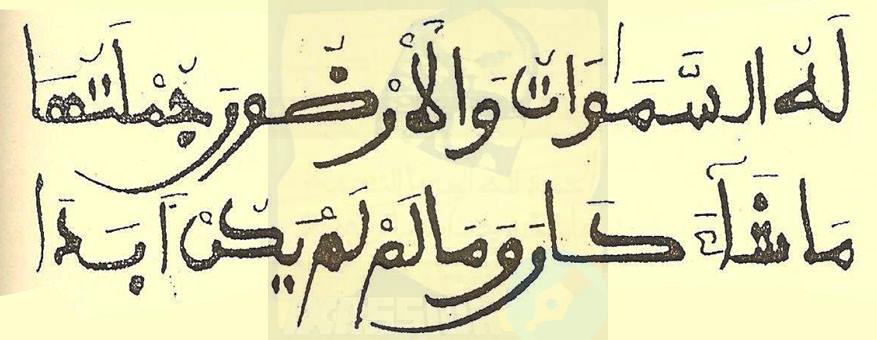 لَهُ السَّمَوَاتُ وَالْأَرْضُونَ جُمْلَتُهَا
مَا شَآءَ كَانَ وَمَا لَمْ لَمْ يَكُنْ أَبَدَا